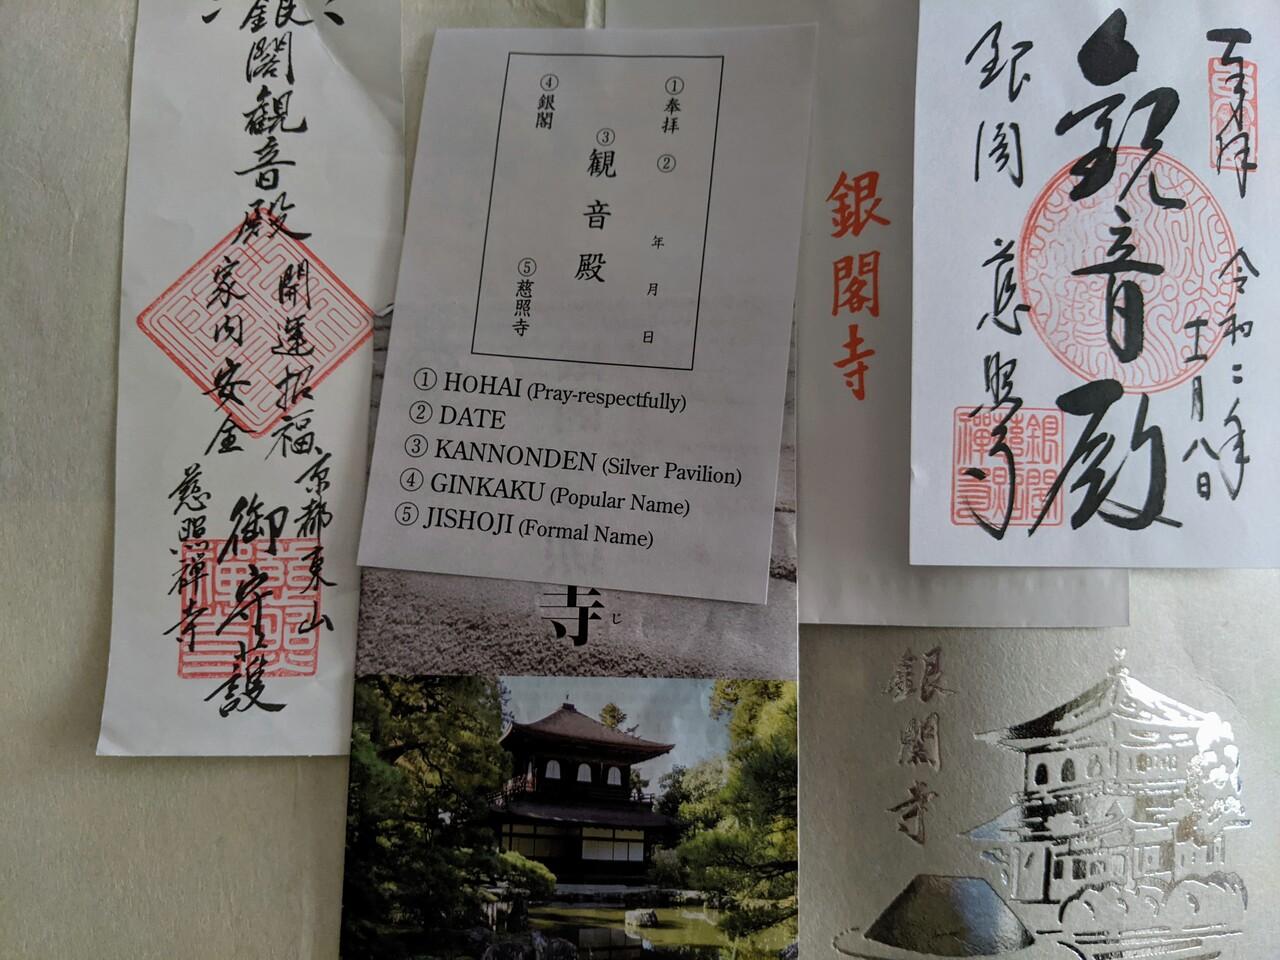 銀閣観音殿
開運招福
家内安全
京都東山
御守護
慈照禅寺
①奉拝 ②
年 月 日
③観音殿
④銀閣
⑤慈照寺
① HOHAI (Pray-respectfully)
② DATE
③ KANNONDEN (Silver Pavilion)
④ GINKAKU (Popular Name)
⑤ JISHOJI (Formal Name)
寺
じ
銀閣寺
奉拝 令和二年
十一月八日
観音殿
銀閣 慈照寺
銀閣寺